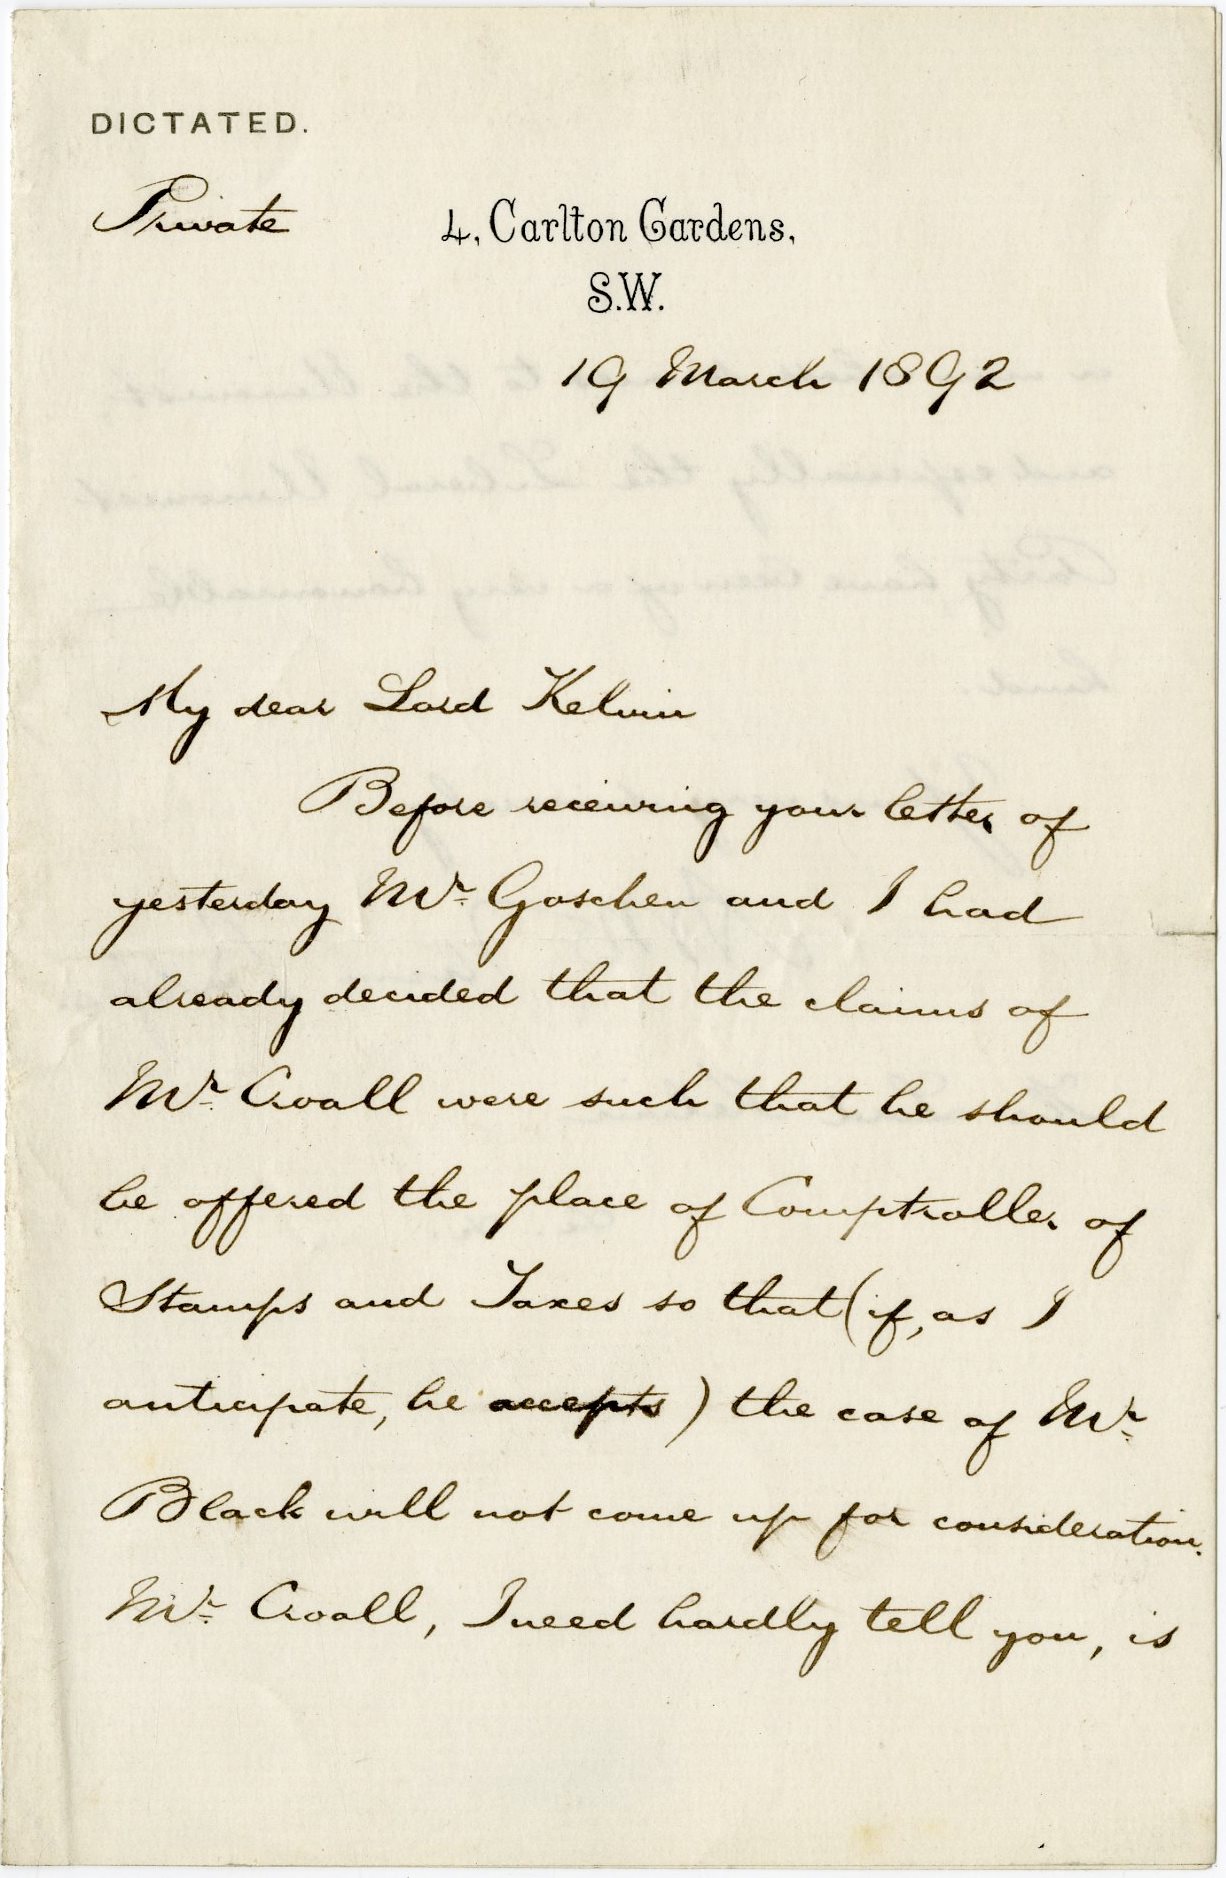 DICTATED.
Private
4, Carlton Gardens,
S.W.
19 March 1892
My dear Lord Kelvin
Before receiving your letter of
yesterday Mr. Goschen and I had
already decided that the claims of
Mr. Croall were such that he should
be offered the place of Comptroller of
Stamps and Taxes so that (if, as I
anticipate, he accepts) the case of Mr.
Black will not come up for consideration.
Mr. Croall, I need hardly tell you, is